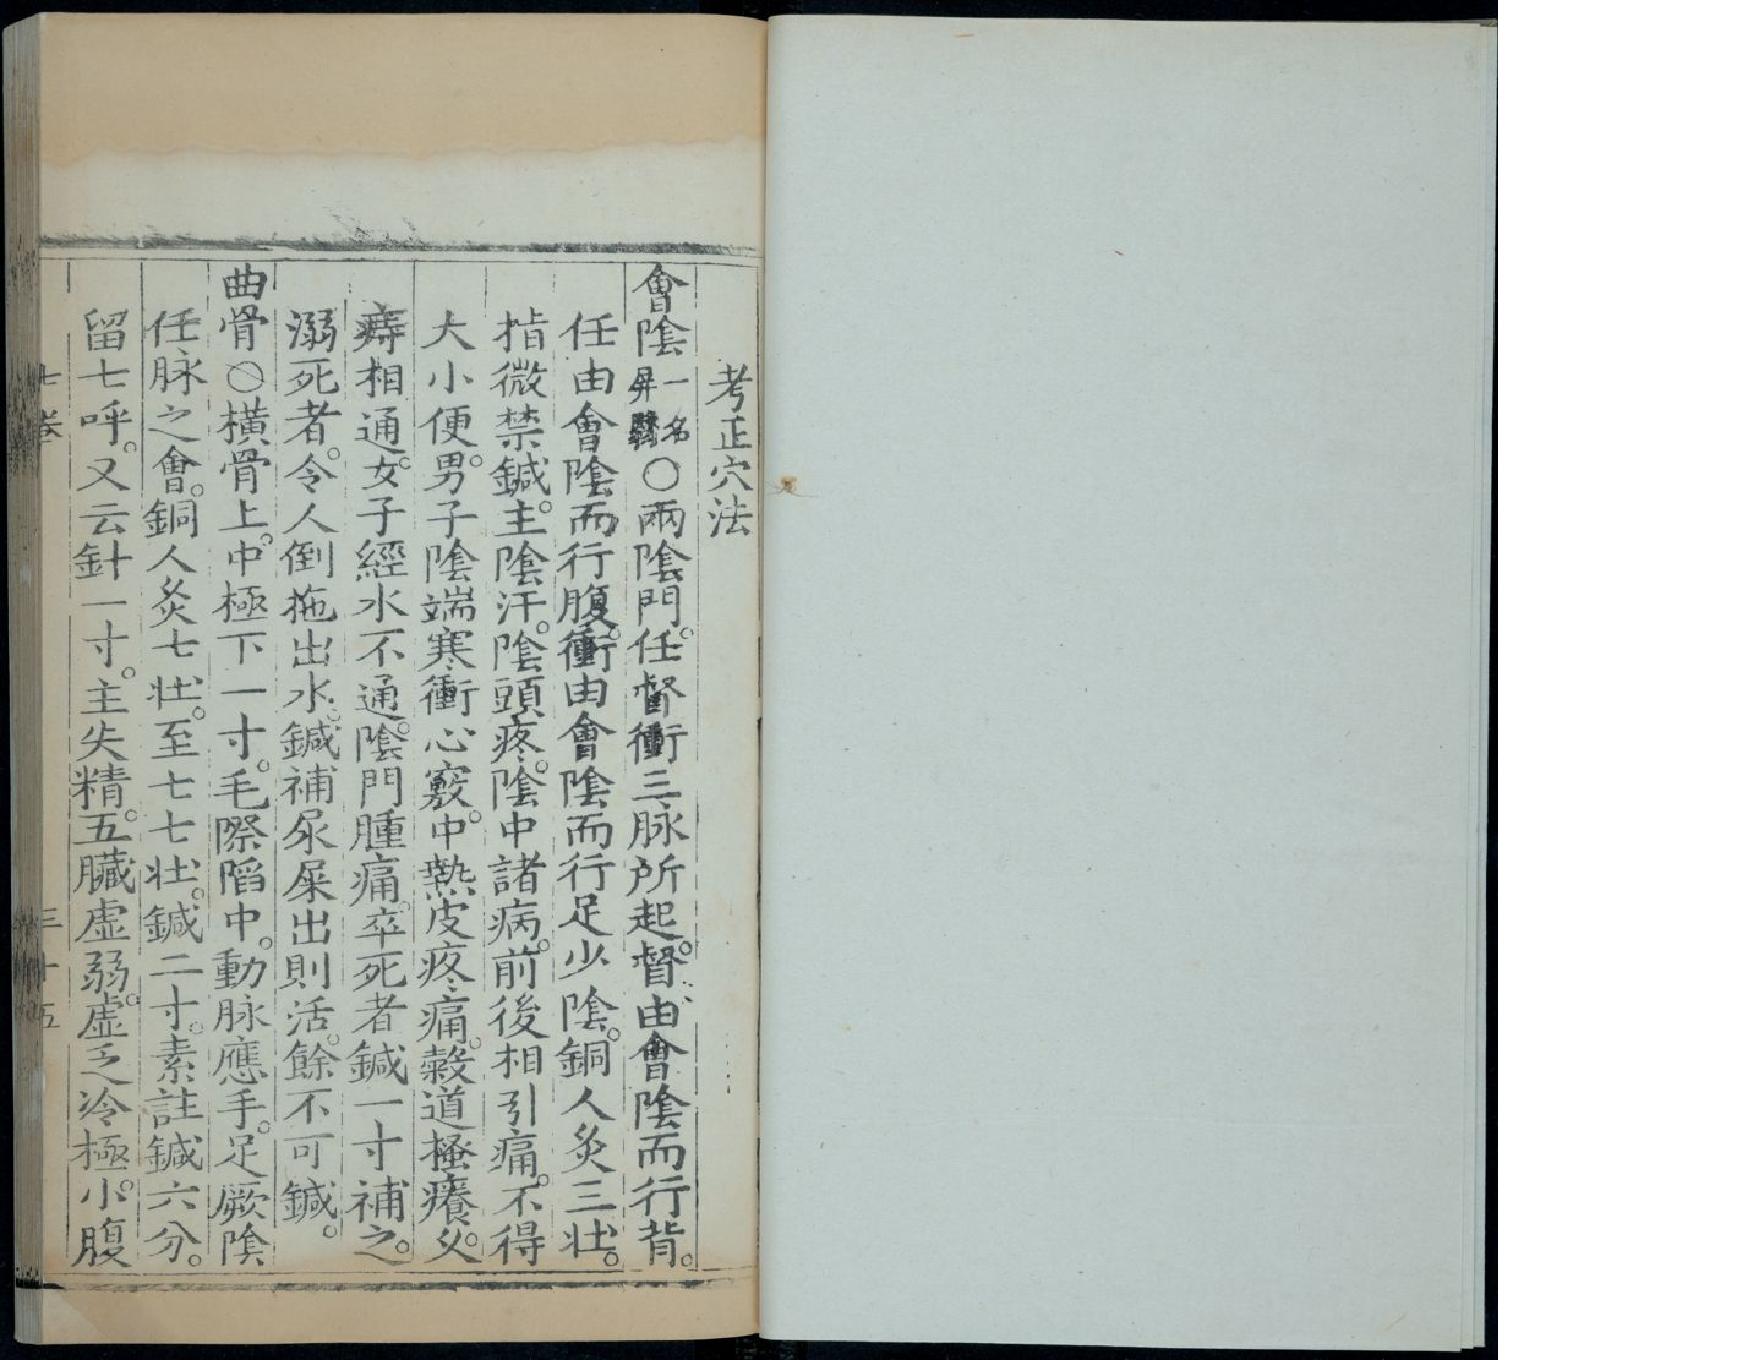 考正穴法
會陰一名屏翳○兩陰門。任督衝三脉所起。督由會陰而行背。
任由會陰而行腹。衝由會陰而行足少陰。銅人灸三壯。
指微禁鍼。主陰汗。陰頭疼。陰中諸病。前後相引痛。不得
大小便。男子陰端寒衝心竅。中熱皮疼痛。穀道搔癢。久
痔相通。女子經水不通。陰門腫痛。卒死者鍼一寸補之。
溺死者。令人倒拖出水。鍼補尿屎出則活。餘不可鍼。
曲骨○橫骨上。中極下一寸。毛際陷中。動脉應手。足厥陰
任脉之會。銅人灸七壯。至七七壯。鍼二寸。素註鍼六分。
留七呼。又云針一寸。主失精。五臟虛弱。虛乏冷極。小腹
七卷 三十五